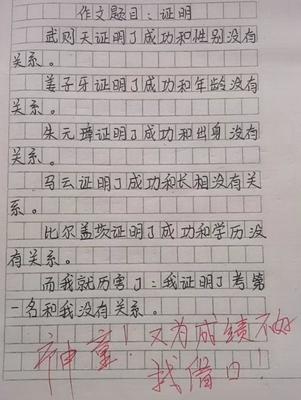 作文题目：证明
武则天证明了成功和性别没有
关系。
姜子牙证明了成功和年龄没有
关系。
朱元璋证明了成功和出身没有
关系。
马云证明了成功和长相没有关
系。
比尔盖茨证明了成功和学历没
有关系。
而我就厉害了：我证明了考第
一名和我没有关系。
神童！又为成绩不好
找借口！